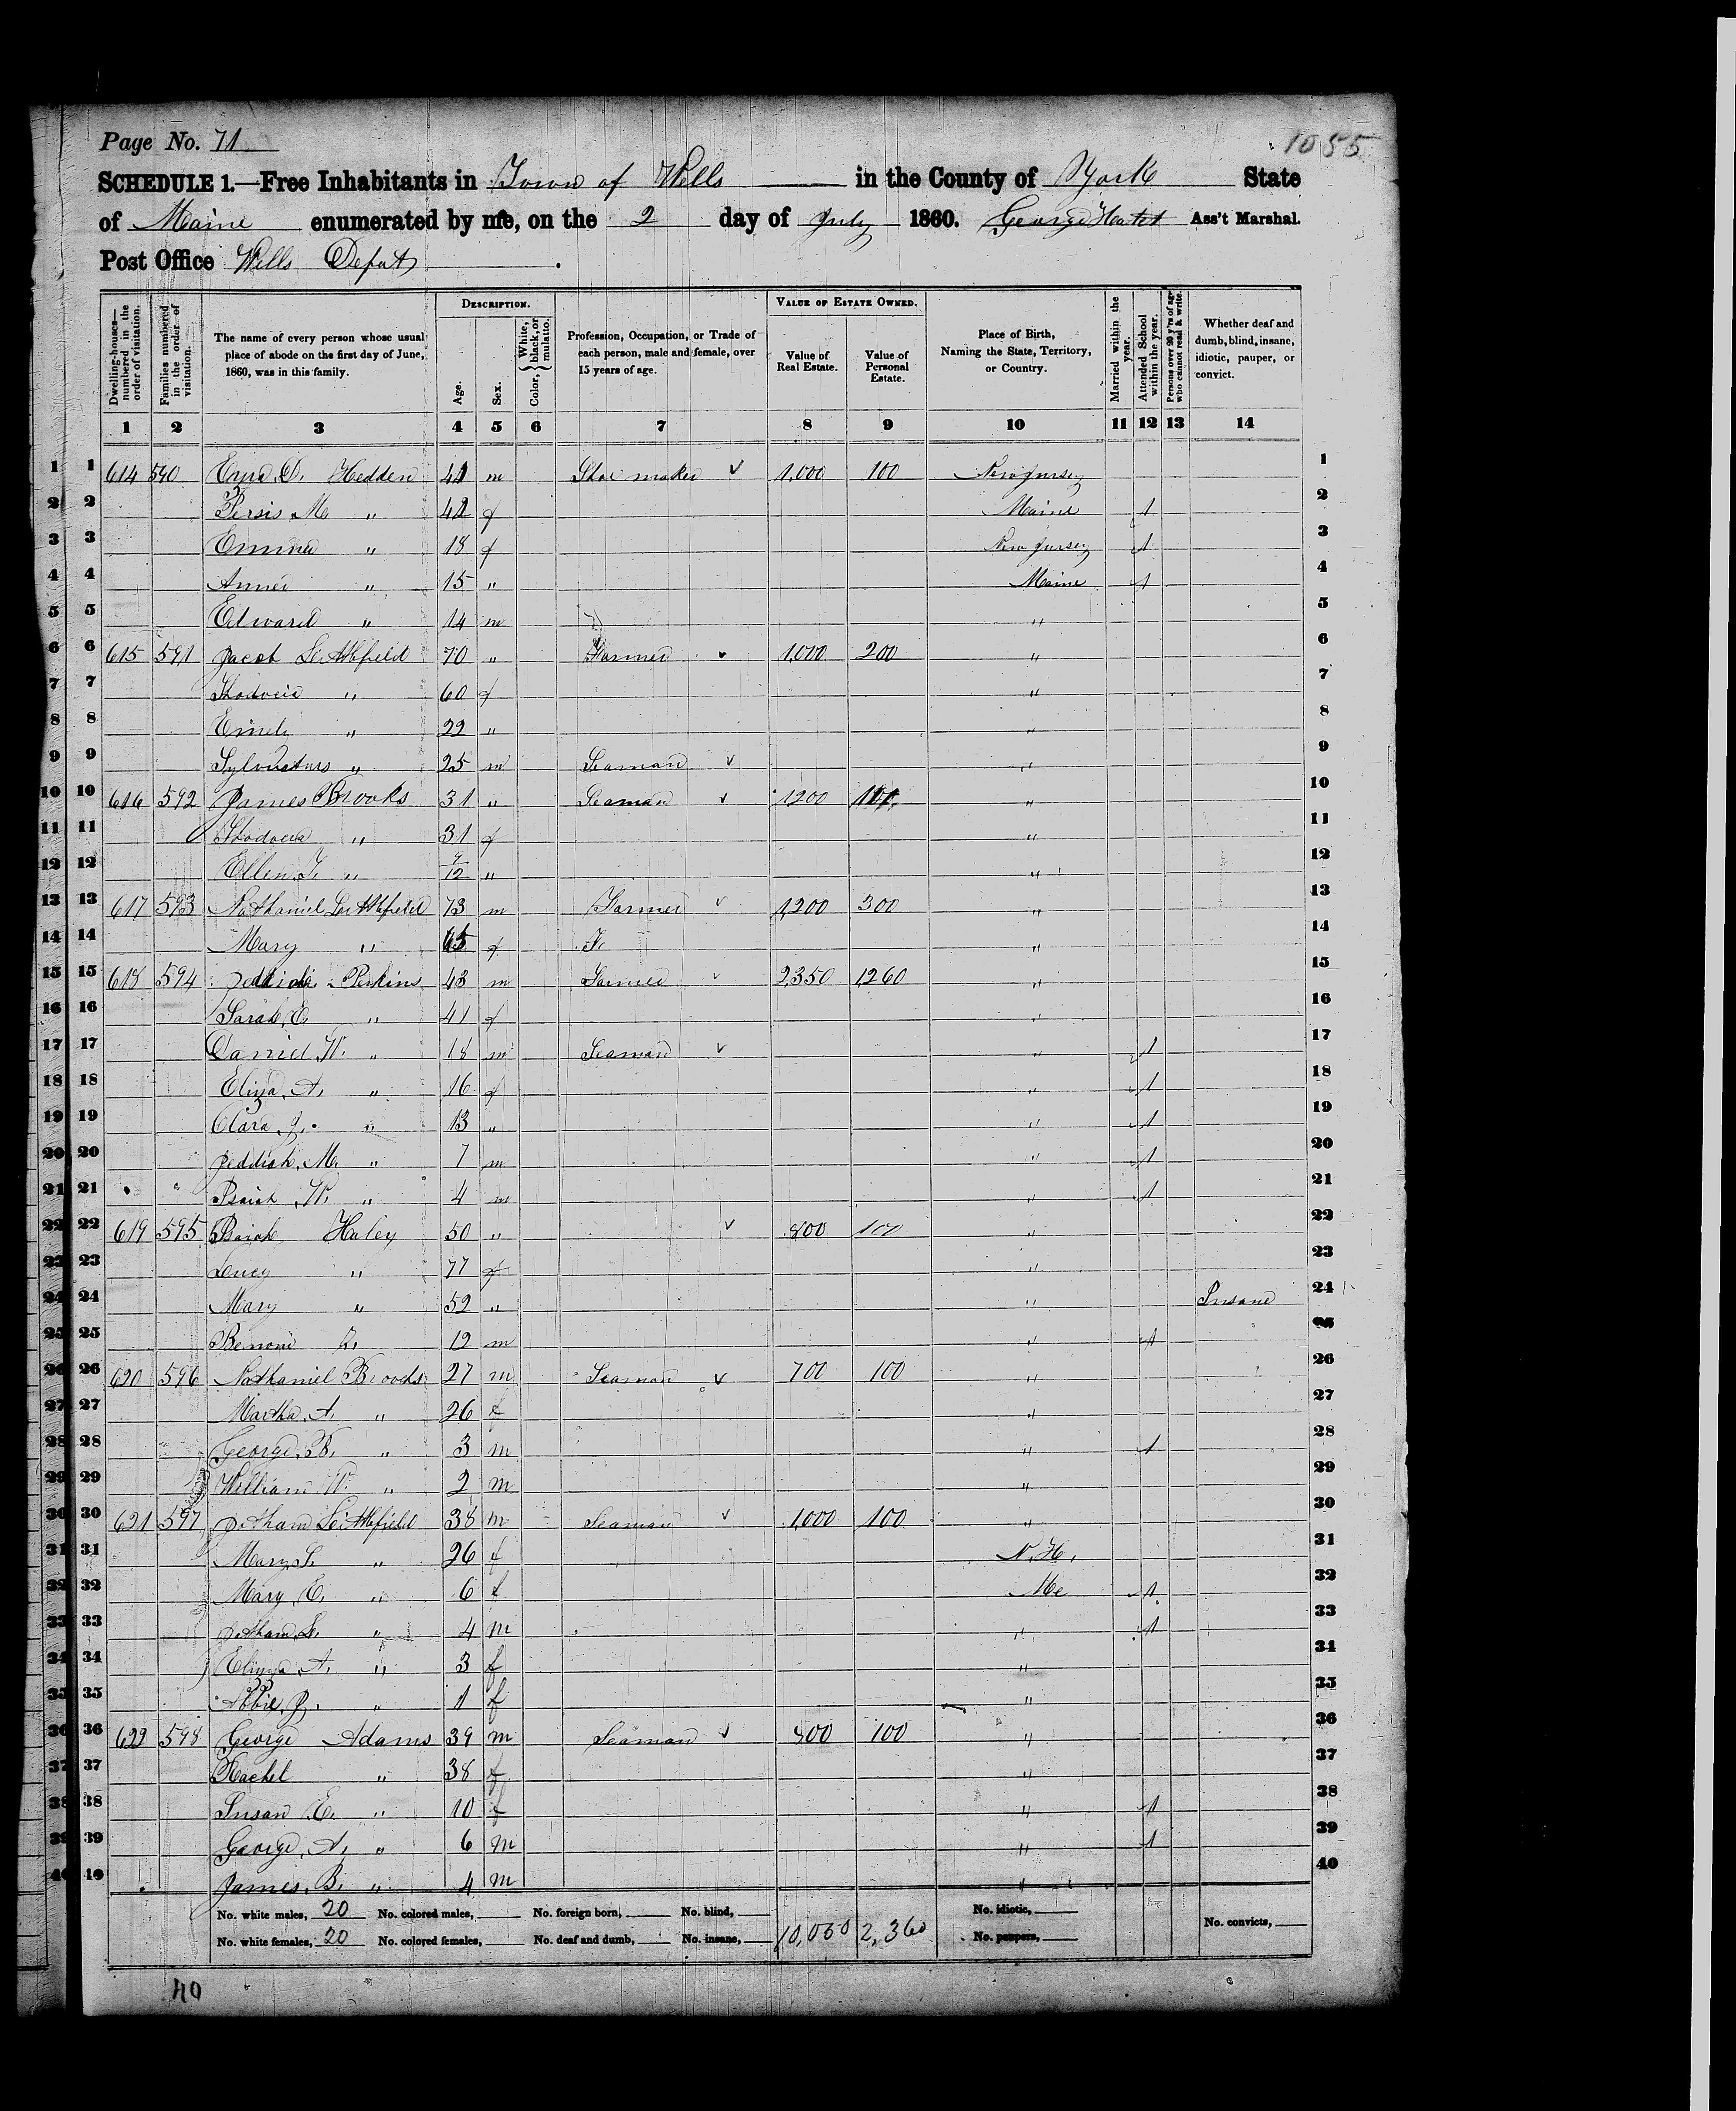 Page No. 71
1055
SCHEDULE 1.—Free Inhabitants in Town of Wells in the County of York State
of Maine enumerated by me, on the 2 day of July 1860. George Ass't Marshal.
Post Office Wells Depot.
DESCRIPTION. VALUE OF ESTATE OWNED.
Dwelling-houses—numbered in the order of visitation.
Families numbered in the order of visitation.
The name of every person whose usual place of abode on the first day of June, 1860, was in this family.
Age.
Sex.
Color, { White, black, or mulatto.
Profession, Occupation, or Trade of each person, male and female, over 15 years of age.
Value of Real Estate.
Value of Personal Estate.
Place of Birth, Naming the State, Territory, or Country.
Married within the year.
Attended School within the year.
Persons over 20 y'rs of age who cannot read & write.
Whether deaf and dumb, blind, insane, idiotic, pauper, or convict.
1 2 3 4 5 6 7 8 9 10 11 12 13 14
1 1 614 590 Ezra D. Hedden 41 m Shoe maker 1,000 100 New Jersey 1
2 2 Persis M. " 42 f Maine 1 2
3 3 Emma " 18 f New Jersey 1 3
4 4 Annie " 15 " Maine 1 4
5 5 Edward " 14 m " 5
6 6 615 591 Jacob Littlefield 70 " Farmer 1,000 200 " 6
7 7 " 60 f " 7
8 8 Emily " 22 " " 8
9 9 Sylvester " 25 m Seaman " 9
10 10 616 592 James Brooks 31 " Seaman 1200 100 " 10
11 11 " 31 f " 11
12 12 Ellen F. " /12 " " 12
13 13 617 593 Nathaniel Littlefield 73 m Farmer 1,200 300 " 13
14 14 Mary " 65 f " 14
15 15 618 594 Jeddiah Perkins 43 m Farmer 2,350 1,260 " 15
16 16 Sarah E. " 41 f " 16
17 17 Daniel W. " 18 m Seaman " 1 17
18 18 Eliza A. " 16 f " 1 18
19 19 Clara J. " 13 " " 1 19
20 20 Jeddiah M. " 7 m " 1 20
21 21 " Isaiah W. " 4 m " 1 21
22 22 619 595 Isaiah Huley 50 " 800 100 " 22
23 23 Lucy " 77 f " 23
24 24 Mary " 52 " " Insane 24
25 25 Benoni 12 m " 1 25
26 26 620 596 Nathaniel Brooks 27 m Seaman 700 100 " 26
27 27 Martha A. " 26 f " 27
28 28 George " 3 m " 1 28
29 29 William W. " 2 m " 29
30 30 621 597 Jotham Littlefield 38 m Seaman 1,000 100 " 30
31 31 Mary S. " 26 f N. H. 31
32 32 Mary E. " 6 f Me 1 32
33 33 Jotham L. " 4 m " 1 33
34 34 Eliza A. " 3 f " 34
35 35 Abbie J. " 1 f " 35
36 36 622 598 George Adams 39 m Seaman 800 100 " 36
37 37 Rachel " 38 f " 37
38 38 Susan E. " 10 f " 1 38
39 39 George A. " 6 m " 1 39
40 40 James B. " 4 m " 40
No. white males, 20 No. colored males, No. foreign born, No. blind, No. idiotic,
No. white females, 20 No. colored females, No. deaf and dumb, No. insane, 10,050 2,360 No. paupers, No. convicts,
40